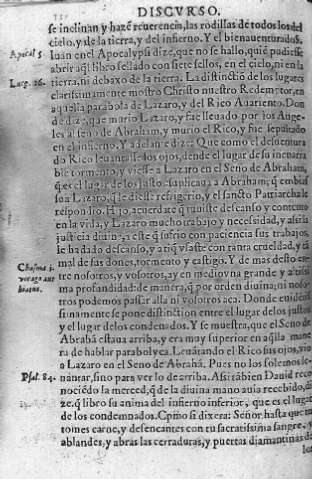 DISCVRSO.
se inclinan y hazẽ reuerencia, las rodillas de todos los del
cielo, y de la tierra, y del infierno. Y el bienauenturado S.
Apocal. 5
Iuan en el Apocalypsi dize, que no se hallo, quiẽ pudiesse
abrir aq̃l libro sellado con siete sellos, en el cielo, ni en la
Luc. 16.
tierra, ni debaxo de la tierra. La distinctiõ de los lugares
clarissimamente mostro Christo nuestro Redemptor, en
aquella parabola de Lazaro, y del Rico Auariento. Don
de dize, que murio Lazaro, y fue lleuado por los Ange-
les al seno de Abraham, y murio el Rico, y fue sepultado
en el infierno. Y adelante dize: Que como el desuentura
do Rico leuantasse los ojos, dende el lugar de su inenarra
ble tormento, y viesse a Lazaro en el Seno de Abraham,
q̃ es el lugar de los justos: suplicaua a Abraham, q̃ embias
se a Lazaro, q̃ le diesse refrigerio, y el sancto Patriarcha le
respondio. Hijo, acuerdate q̃ tuuiste descanso y contento
en tu vida, y Lazaro mucho trabajo y necessidad, y assi la
justicia diuina, a este q̃ sufrio con paciencia sus trabajos,
le ha dado descanso, y a ti, q̃ vsaste con tanta crueldad, y tã
mal de sus dones, tormento y castigo. Y de mas desto en-
Chasma i.
tre nosotros, y vosotros, ay en medio vna grande y altissi
voraago aut
hiatus.
ma profundidad: de manera, q̃ por orden diuina, ni noso
tros podemos passar alla ni vosotros aca. Donde euidẽtis
sinamente se pone distinction entre el lugar de los justos
y el lugar de los condenados. Y se muestra, que el Seno de
Abrahã estaua arriba, y era muy superior en aq̃lla mane
ra de hablar parabolyca. Leuãtando el Rico sus ojos, vio
a Lazaro en el Seno de Abrahã. Pues no los solemos le-
Psal. 84.
uantar, sino para ver lo de arriba. Assi tãbien Dauid reco
nociẽdo la merced, q̃ de la diuina mano auia recebido, di
ze, q̃ libro su anima del infierno inferior, que es el lugar
de los condenados. Como si dixera: Señor hasta que tu
tomes carne, y desencantes con tu sacratissima sangre, y
ablandes, y abras las cerraduras, y puertas diamantinas de
los